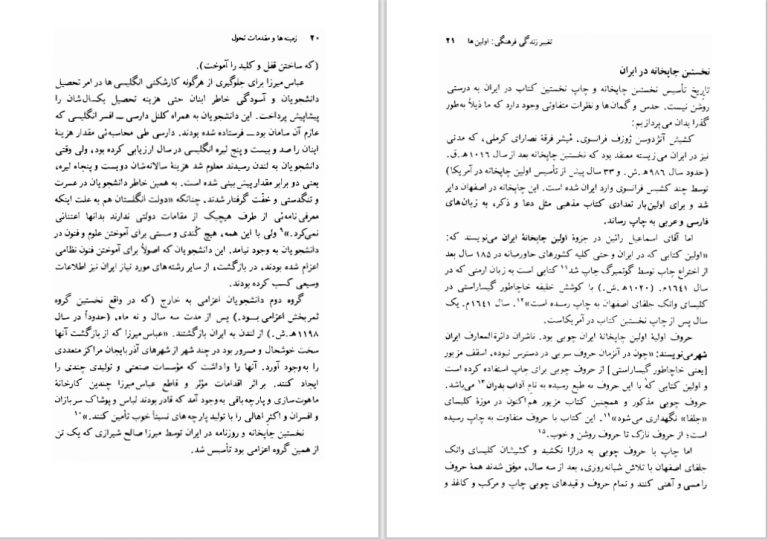 ۲۰ زمینه‌ها و مقدمات تحول
(که ساختن قفل و کلید را آموخت).
عباس‌میرزا برای جلوگیری از هرگونه کارشکنی انگلیسی‌ها در امر تحصیل
دانشجویان و آسودگی خاطر اینان حتی هزینه تحصیل یکسال‌شان را
پیشاپیش پرداخت. این دانشجویان به همراه کلنل دارسی ــ افسر انگلیسی که
عازم آن سامان بود ــ فرستاده شده بودند. دارسی طی محاسبه‌ئی مقدار هزینهٔ
اینان را صد و بیست و پنج لیره انگلیسی در سال ارزیابی کرده بود، ولی وقتی
دانشجویان به لندن رسیدند معلوم شد هزینهٔ سالانه‌شان دویست و پنجاه لیره،
یعنی دو برابر مقدار پیش‌بینی شده است. به همین خاطر دانشجویان در عسرت
و تنگدستی و خفّت گرفتار شدند. چنانکه «دولت انگلستان هم به علت اینکه
معرفی‌نامه‌ئی از طرف هیچیک از مقامات دولتی ندارند بدانها اعتنائی
نمی‌کرد.»۹ ولی با این همه، هیچ کُندی و سستی برای آموختن علوم و فنون در
دانشجویان به وجود نیامد. این دانشجویان که اصولاً برای آموختن فنون نظامی
اعزام شده بودند، در بازگشت، از سایر رشته‌های مورد نیاز ایران نیز اطلاعات
وسیعی کسب کرده بودند.
گروه دوم دانشجویان اعزامی به خارج (که در واقع نخستین گروه
ثمربخش اعزامی بود.) پس از مدت سه سال و نه ماه، (حدوداً در سال
۱۱۹۸ه‍.ش.) از لندن به ایران بازگشتند. «عباس‌میرزا که از بازگشت آنها
سخت خوشحال و مسرور بود در چند شهر از شهرهای آذربایجان مراکز متعددی
را به‌وجود آورد. آنها را واداشت که مؤسسات صنعتی و تولیدی چندی را
ایجاد کنند. بر اثر اقدامات مؤثر و قاطع عباس‌میرزا چندین کارخانهٔ
ماهوت‌سازی و پارچه‌بافی به‌وجود آمد که قادر بودند لباس و پوشاک سربازان
و افسران و اکثر اهالی را با تولید پارچه‌های نسبتاً خوب تأمین کنند.»۱۰
نخستین چاپخانه و روزنامه در ایران توسط میرزا صالح شیرازی که یک تن
از همین گروه اعزامی بود تأسیس شد.
تغییر زندگی فرهنگی: اولین‌ها ۲۱
نخستین چاپخانه در ایران
تاریخ تأسیس نخستین چاپخانه و چاپ نخستین کتاب در ایران به درستی
روشن نیست. حدس و گمان‌ها و نظرات متفاوتی وجود دارد که ما ذیلاً به‌طور
گذرا بدان می‌پردازیم:
کشیش آنژدوسن ژوزف فرانسوی، مُبشر فرقهٔ نصارای کرملی، که مدتی
نیز در ایران می‌زیسته معتقد بود که نخستین چاپخانه بعد از سال ۱۰۱۶ ه‍.ق.
(حدود سال ۹۸۶ه‍.ش. و ۳۳ سال پیش از تأسیس اولین چاپخانه در آمریکا)
توسط چند کشیش فرانسوی وارد ایران شده است. این چاپخانه در اصفهان دایر
شد و برای اولین‌بار تعدادی کتاب مذهبی مثل دعا و ذکر، به زبان‌های
فارسی و عربی به چاپ رساند.
اما آقای اسماعیل رائین در جزوهٔ اولین چاپخانهٔ ایران می‌نویسند که:
«اولین کتابی که در ایران و حتی کلیه کشورهای خاورمیانه در ۱۸۵ سال بعد
از اختراع چاپ توسط گوتمبرگ چاپ شد۱۱ کتابی است به زبان ارمنی که در
سال ۱۶۴۱م. (۱۰۲۰ه‍.ش.) با کوشش خلیفه خاچاطور گیساراستی در
کلیسای وانک جلفای اصفهان به چاپ رسیده است»۱۲. سال ۱۶۴۱م. یک
سال پس از چاپ نخستین کتاب در آمریکاست.
حروف اولیهٔ اولین چاپخانهٔ ایران چوبی بود. ناشران دائرة‌المعارف ایران
شهر می‌نویسند: «چون در آنزمان حروف سربی در دسترس نبوده، اسقف مزبور
[یعنی خاچاطور گیساراستی] از حروف چوبی برای چاپ استفاده کرده است
و اولین کتابی که با این حروف به طبع رسیده به نام آداب بدران۱۳ می‌باشد.
حروف چوبی مذکور و همچنین کتاب مزبور هم‌اکنون در موزهٔ کلیسای
«جلفا» نگهداری می‌شود»۱۴. این کتاب با حروف متفاوت به چاپ رسیده
است؛ از حروف نازک تا حروف روشن و خوب.۱۵
اما چاپ با حروف چوبی به درازا نکشید و کشیشان کلیسای وانک
جلفای اصفهان با تلاش شبانه‌روزی، بعد از سه سال، موفق شدند همهٔ حروف
را مسی و آهنی کنند و تمام حروف و قیدهای چوبی چاپ و مرکب و کاغذ و